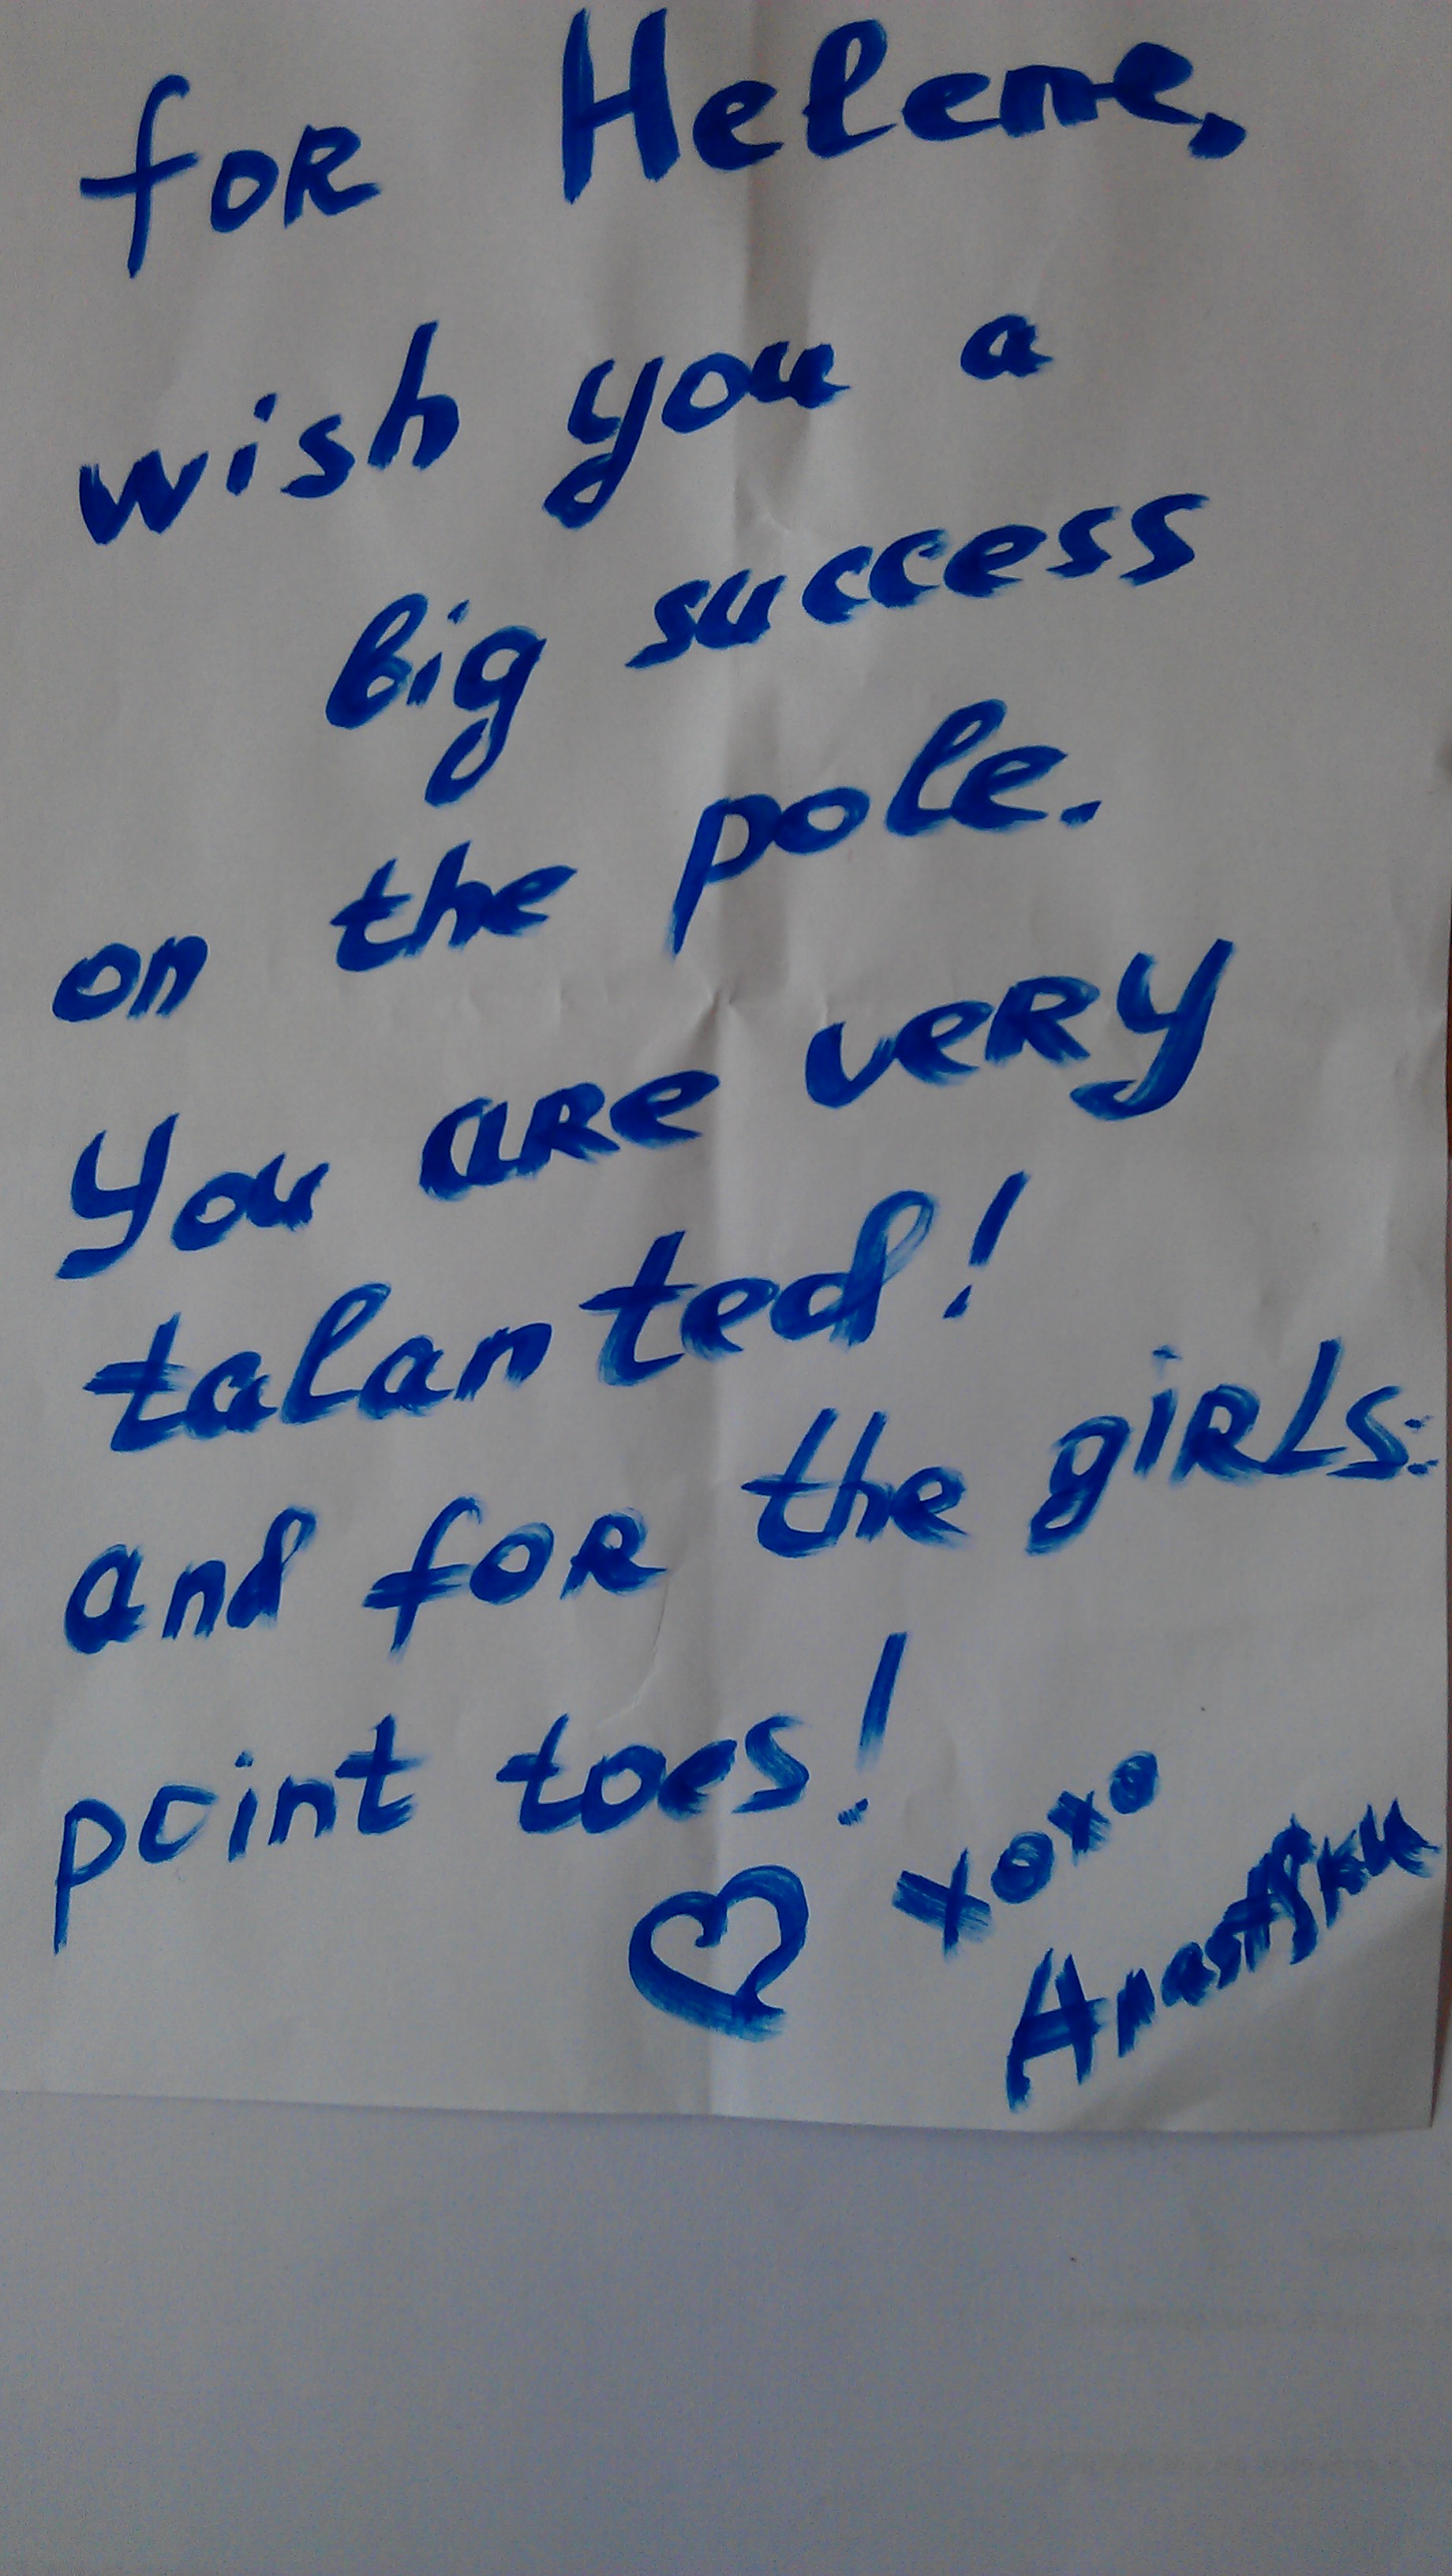 for Helene,
wish you a
big success
on the pole.
You are very
talanted!
and for the girls:
point toes!
xoxo